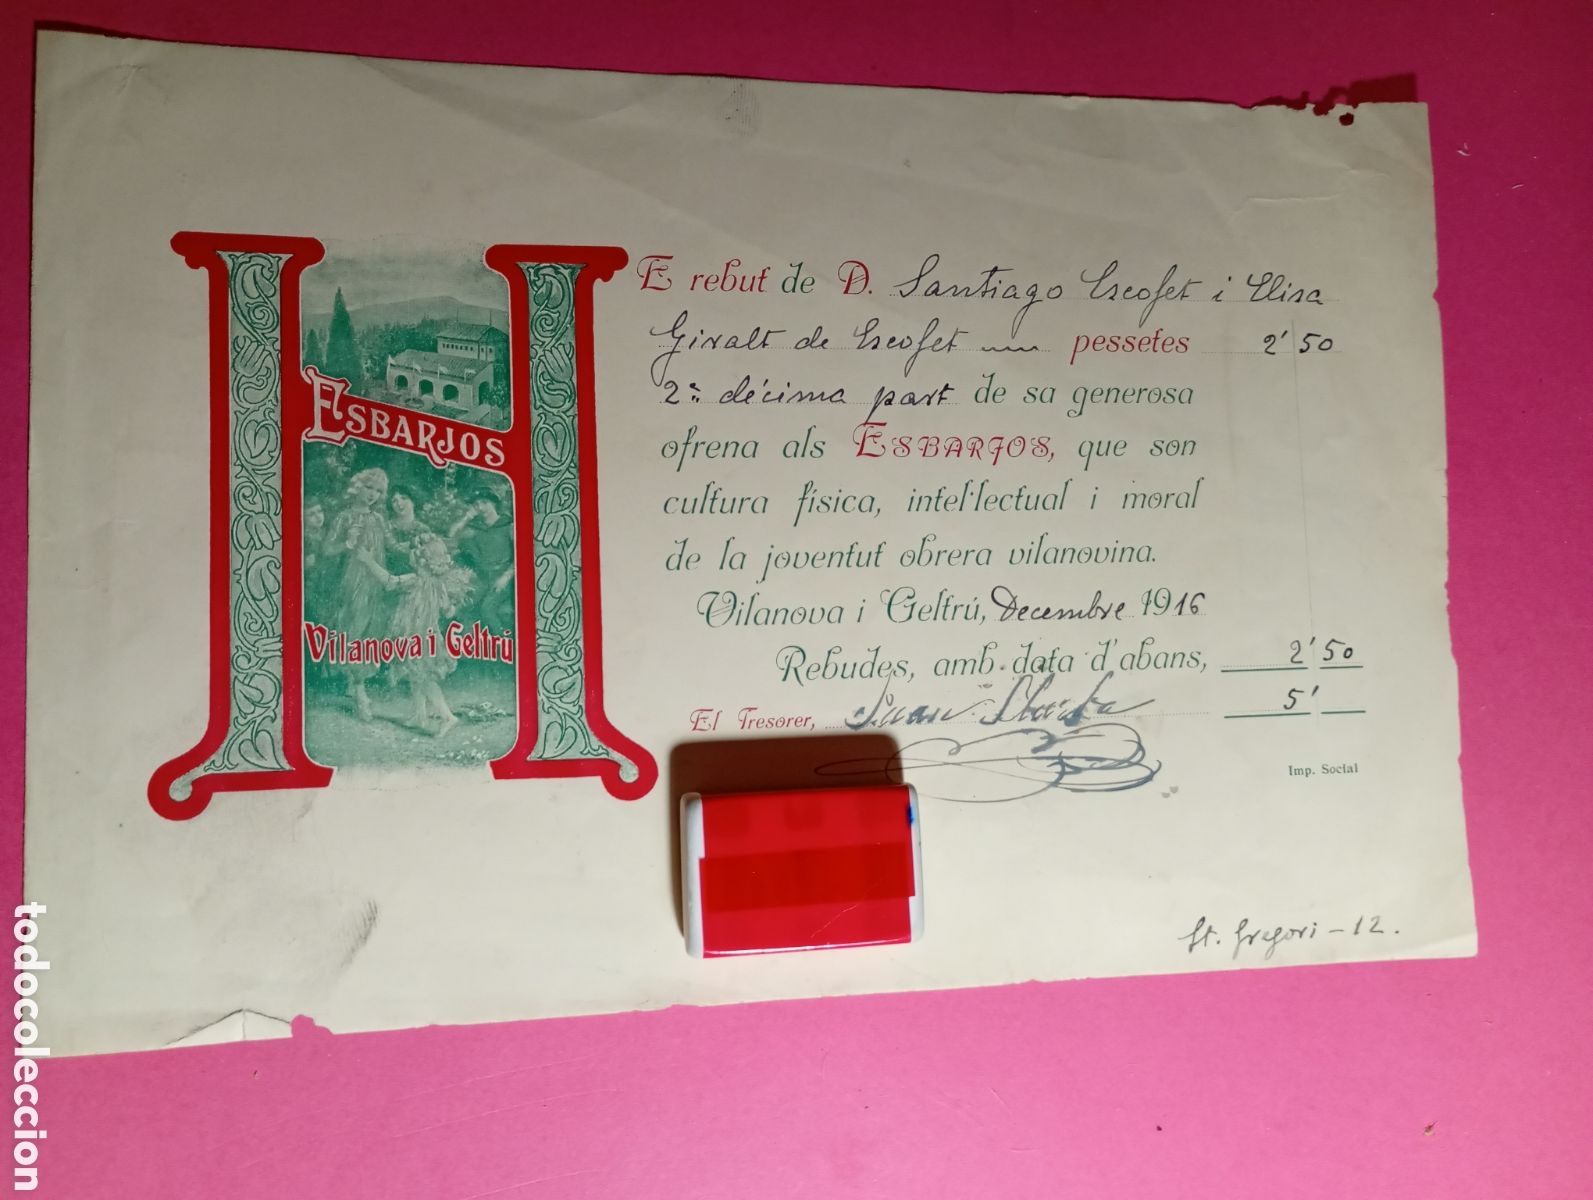 HE rebut de D. Santiago Escofet i Elisa
Giralt de Escofet pessetes 2'50
2ª décima part de sa generosa
ofrena als ESBARJOS, que son
cultura física, intel·lectual i moral
de la joventut obrera vilanovina.
Vilanova i Geltrú, Decembre 1916
Rebudes, amb data d'abans, 2'50
5'
El Tresorer, Juan
Imp. Social
St. Gregori - 12.
ESBARJOS
Vilanova i Geltrú
todocoleccion